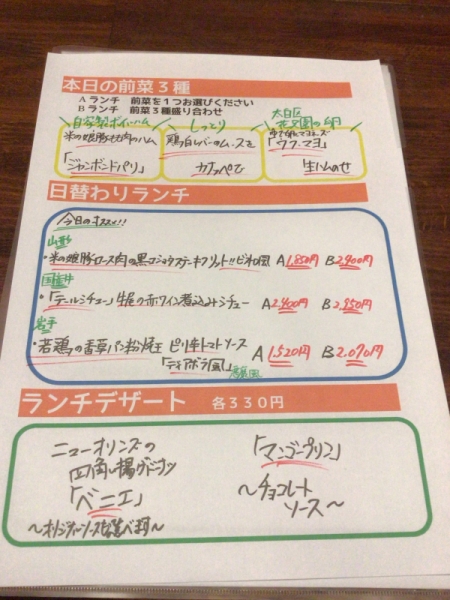 本日の前菜3種
Aランチ 前菜を1つお選びください
Bランチ 前菜3種盛り合わせ
自家製ボイルハム
米の娘豚もも肉のハム
「ジャンボンドパリ」
しっとり
鶏白レバーのムースを
カナッペで
太白区
花兄園の卵
「ウフ・マヨ」
生ハムのせ
日替わりランチ
今日のオススメ!!
山形
・米の娘豚ロース肉の黒コショウステーキフリット!!ビネ風 A1,850円 B2,400円
国産牛
・「テールシチュー」牛尾の赤ワイン煮込みシチュー A2,400円 B2,950円
岩手
・若鶏の香草パン粉焼 ピリ辛トマトソース A1,520円 B2,070円
「ディアボラ風」
ランチデザート 各330円
ニューオリンズの
四角い揚げドーナツ
「ベニエ」
「マンゴープリン」
~チョコレート
ソース~